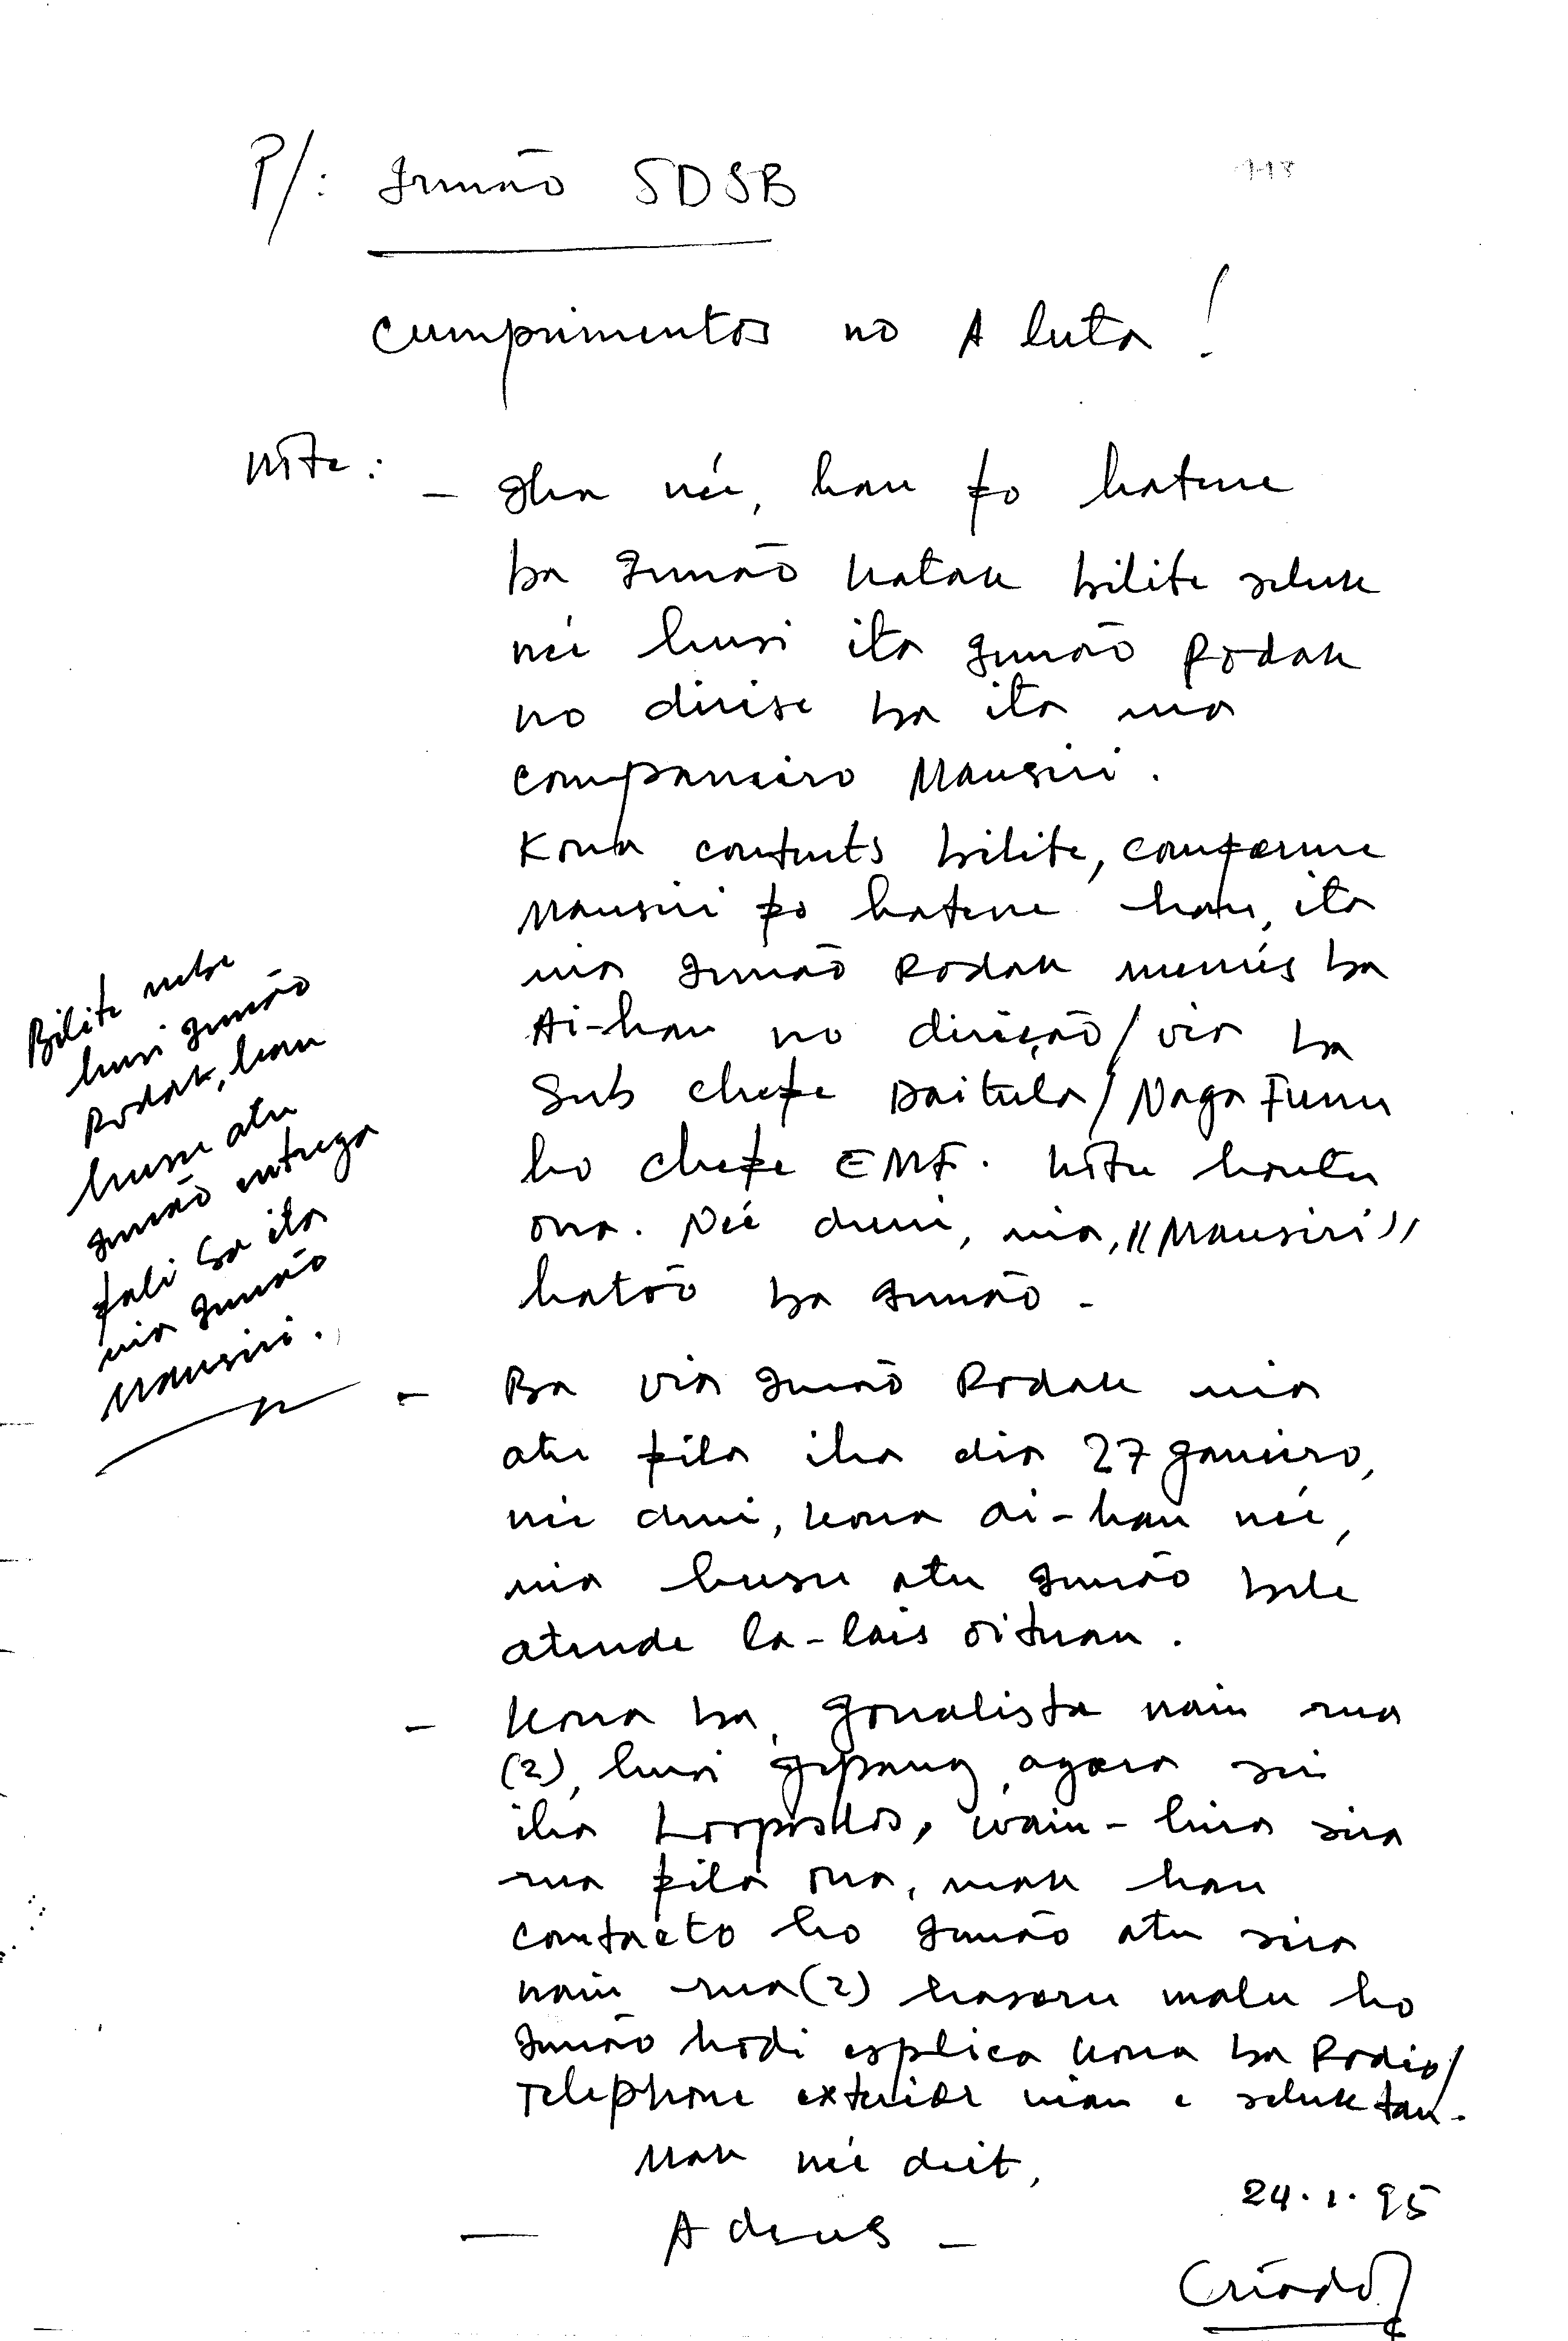 P/: Irmão SDSB
118
Cumprimentos no A luta!
Nota:
- Iha neé, hau fo hatene
ba Irmão katak bilite seluk
neé husi ita Irmão Rodak
no dirise ba ita nia
companeiro Mausiri.
Kona contuts bilite, conforme
Mausiri fo hatene hau, ita
nia Irmão Rodak menús ba
Ai-han no direção/via ba
Sub chefe Daitula/Naga Funu
ho chefe EMF. hotu hautu
ona. Neé duni, nia, "Mausiri"
hatoō ba Irmão -
- Ba via Irmão Rodak nia
atu fila iha dia 27 Janeiro,
neé duni, kona ai-han neé,
nia husu atu Irmão bele
atende la-lais oituan.
- Kona ba, Jornalista nain rua
(2), husi Jepang, agora sei
iha Lospallos, wain-hira sira
rua fila ona, mak hau
contacto ho Irmão atu sira
nain rua (2) hasoru malu ho
Irmão hodi esplica kona ba Radio/
Telephone exterior nian e seluk tan.
Mak neé deit,
- Adeus -
24.1.95
Criado
Bilite nebe
husi Irmão
Rodak, hau
husu atu
Irmão entrega
fali ba ita
nia Irmão
Mausiri.